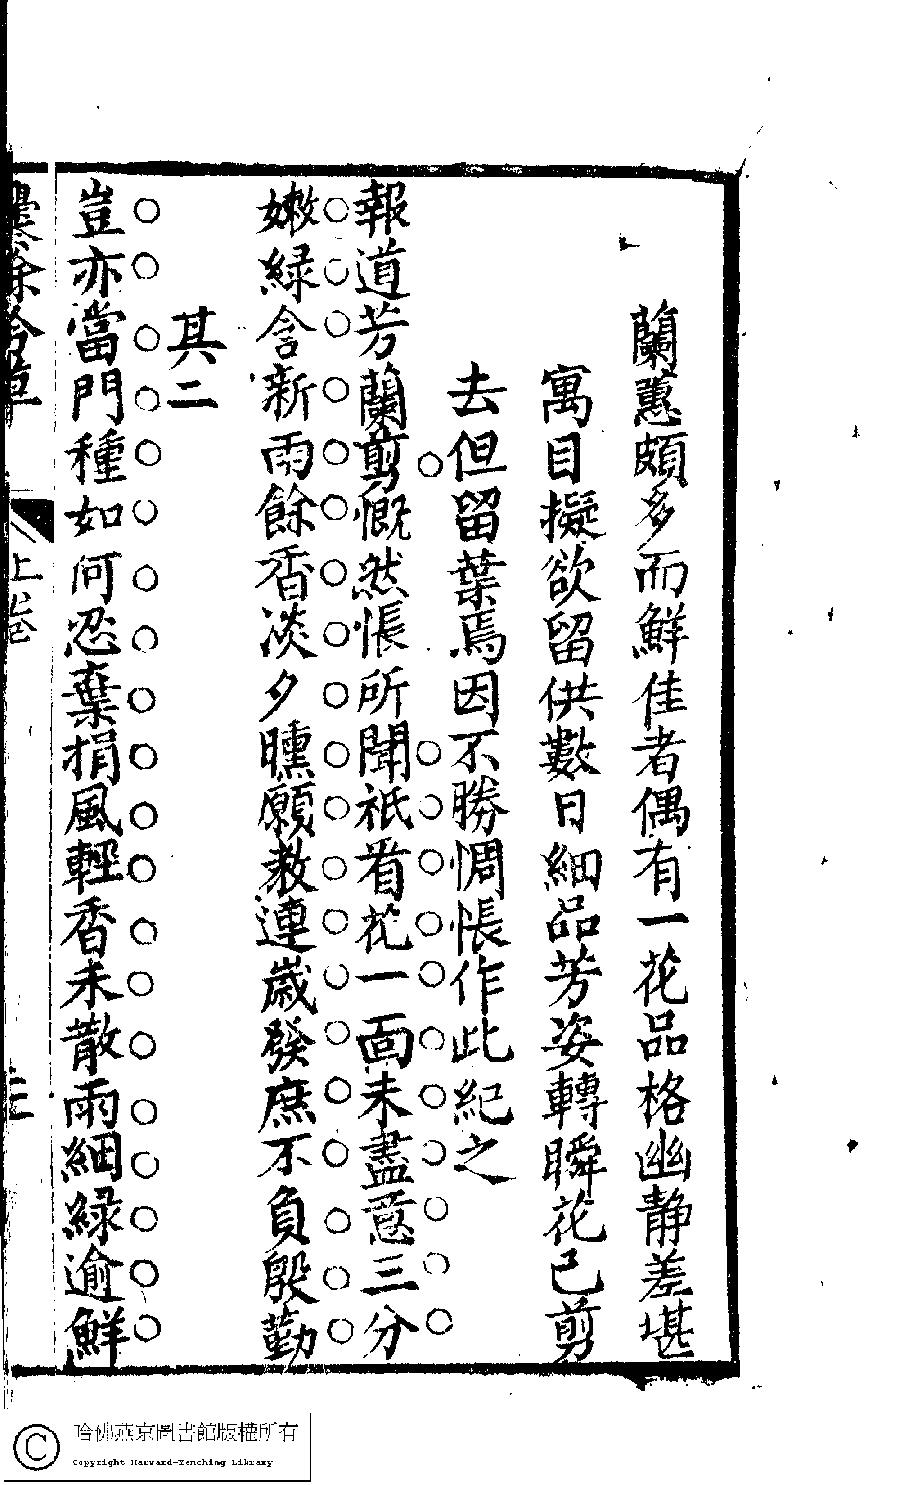 蘭蕙頗多而鮮佳者偶有一花品格幽靜差堪
寓目擬欲留供數日細品芳姿轉瞬花已剪
去但留葉焉因不勝惆悵作此紀之
報道芳蘭剪慨然悵所聞祇看花一面未盡意三分
嫩綠含新雨餘香淡夕曛願教連歲發庶不負殷勤
其二
豈亦當門種如何忍棄捐風輕香未散雨細綠逾鮮
餘吟草
上卷
哈佛燕京圖書館版權所有
Copyright Harvard-Yenching Library